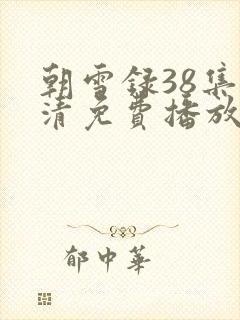 朝雪録38集
清免費播放
郁中華